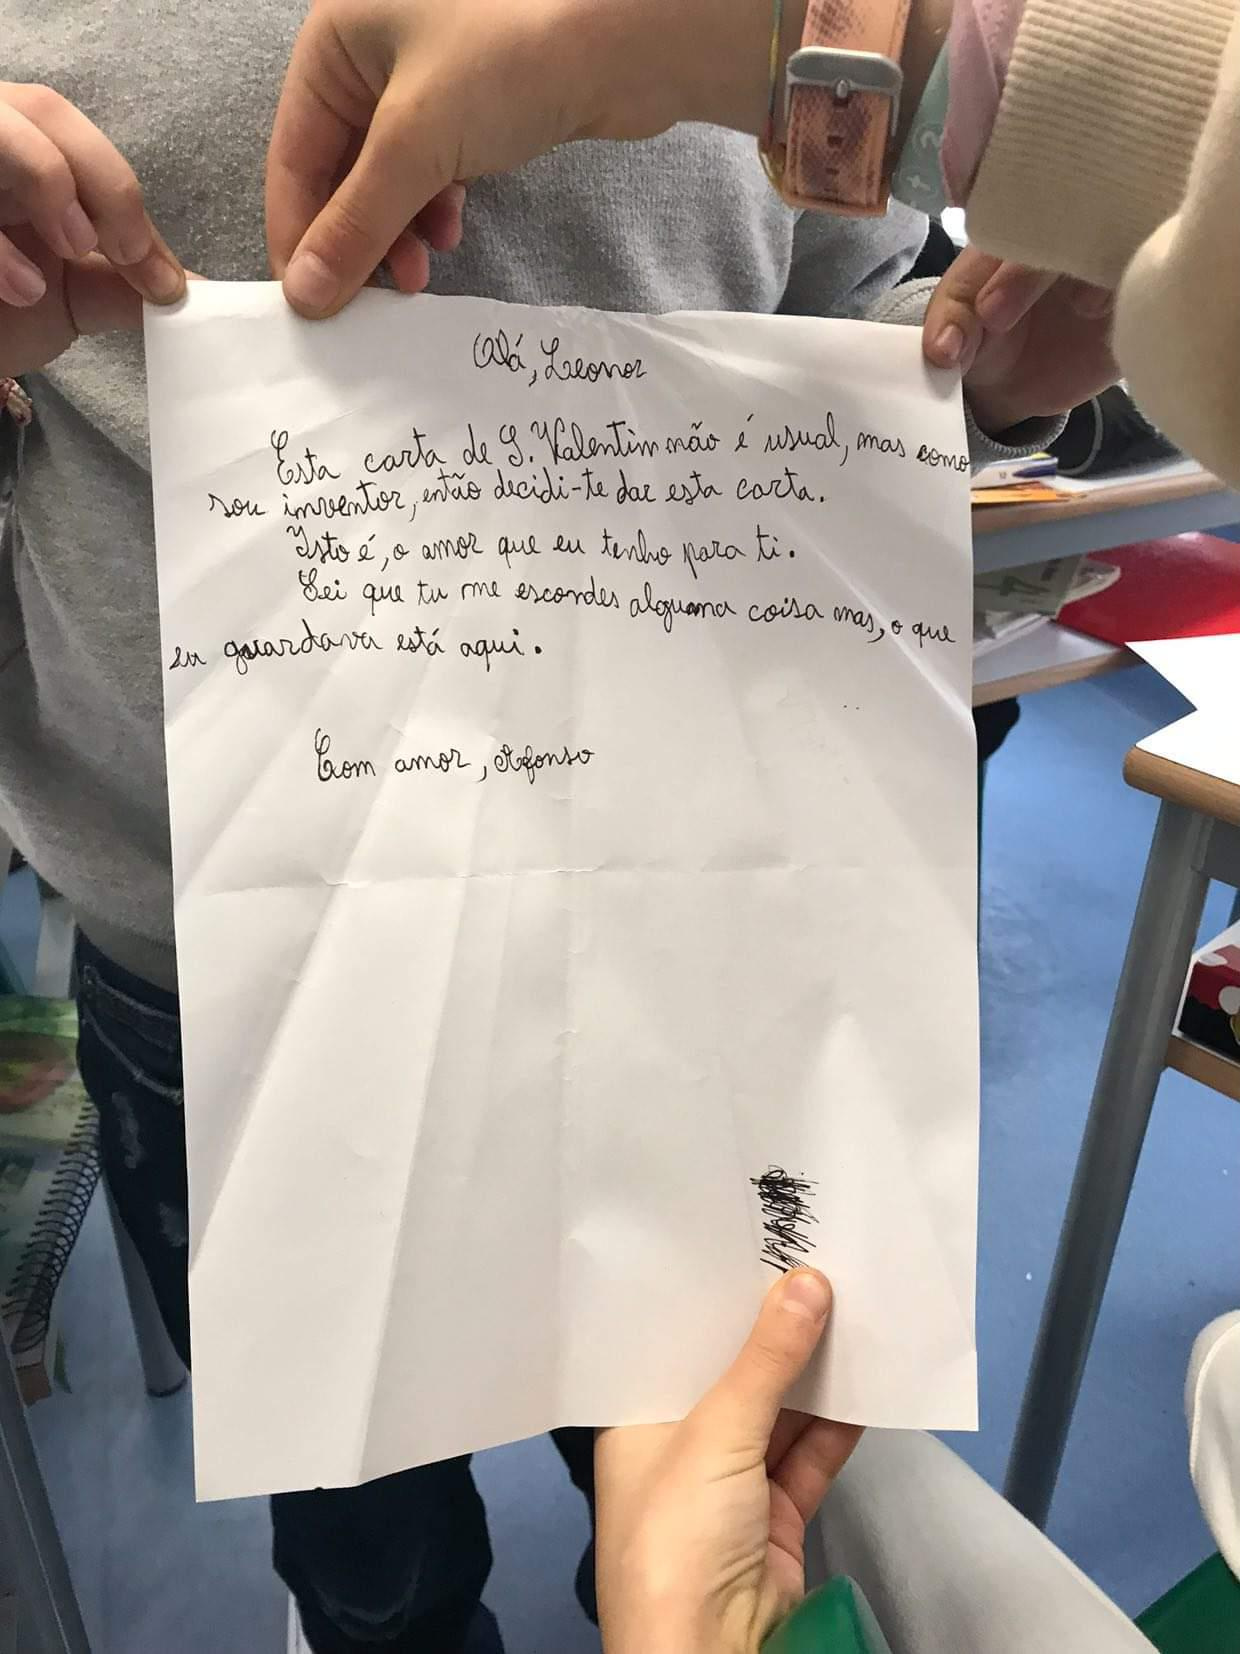 Olá, Leonor
Esta carta de S. Valentim não é usual, mas como
sou inventor, então decidi-te dar esta carta.
Isto é, o amor que eu tenho para ti.
Sei que tu me escondes alguma coisa mas, o que
eu guardava está aqui.
Com amor, Afonso